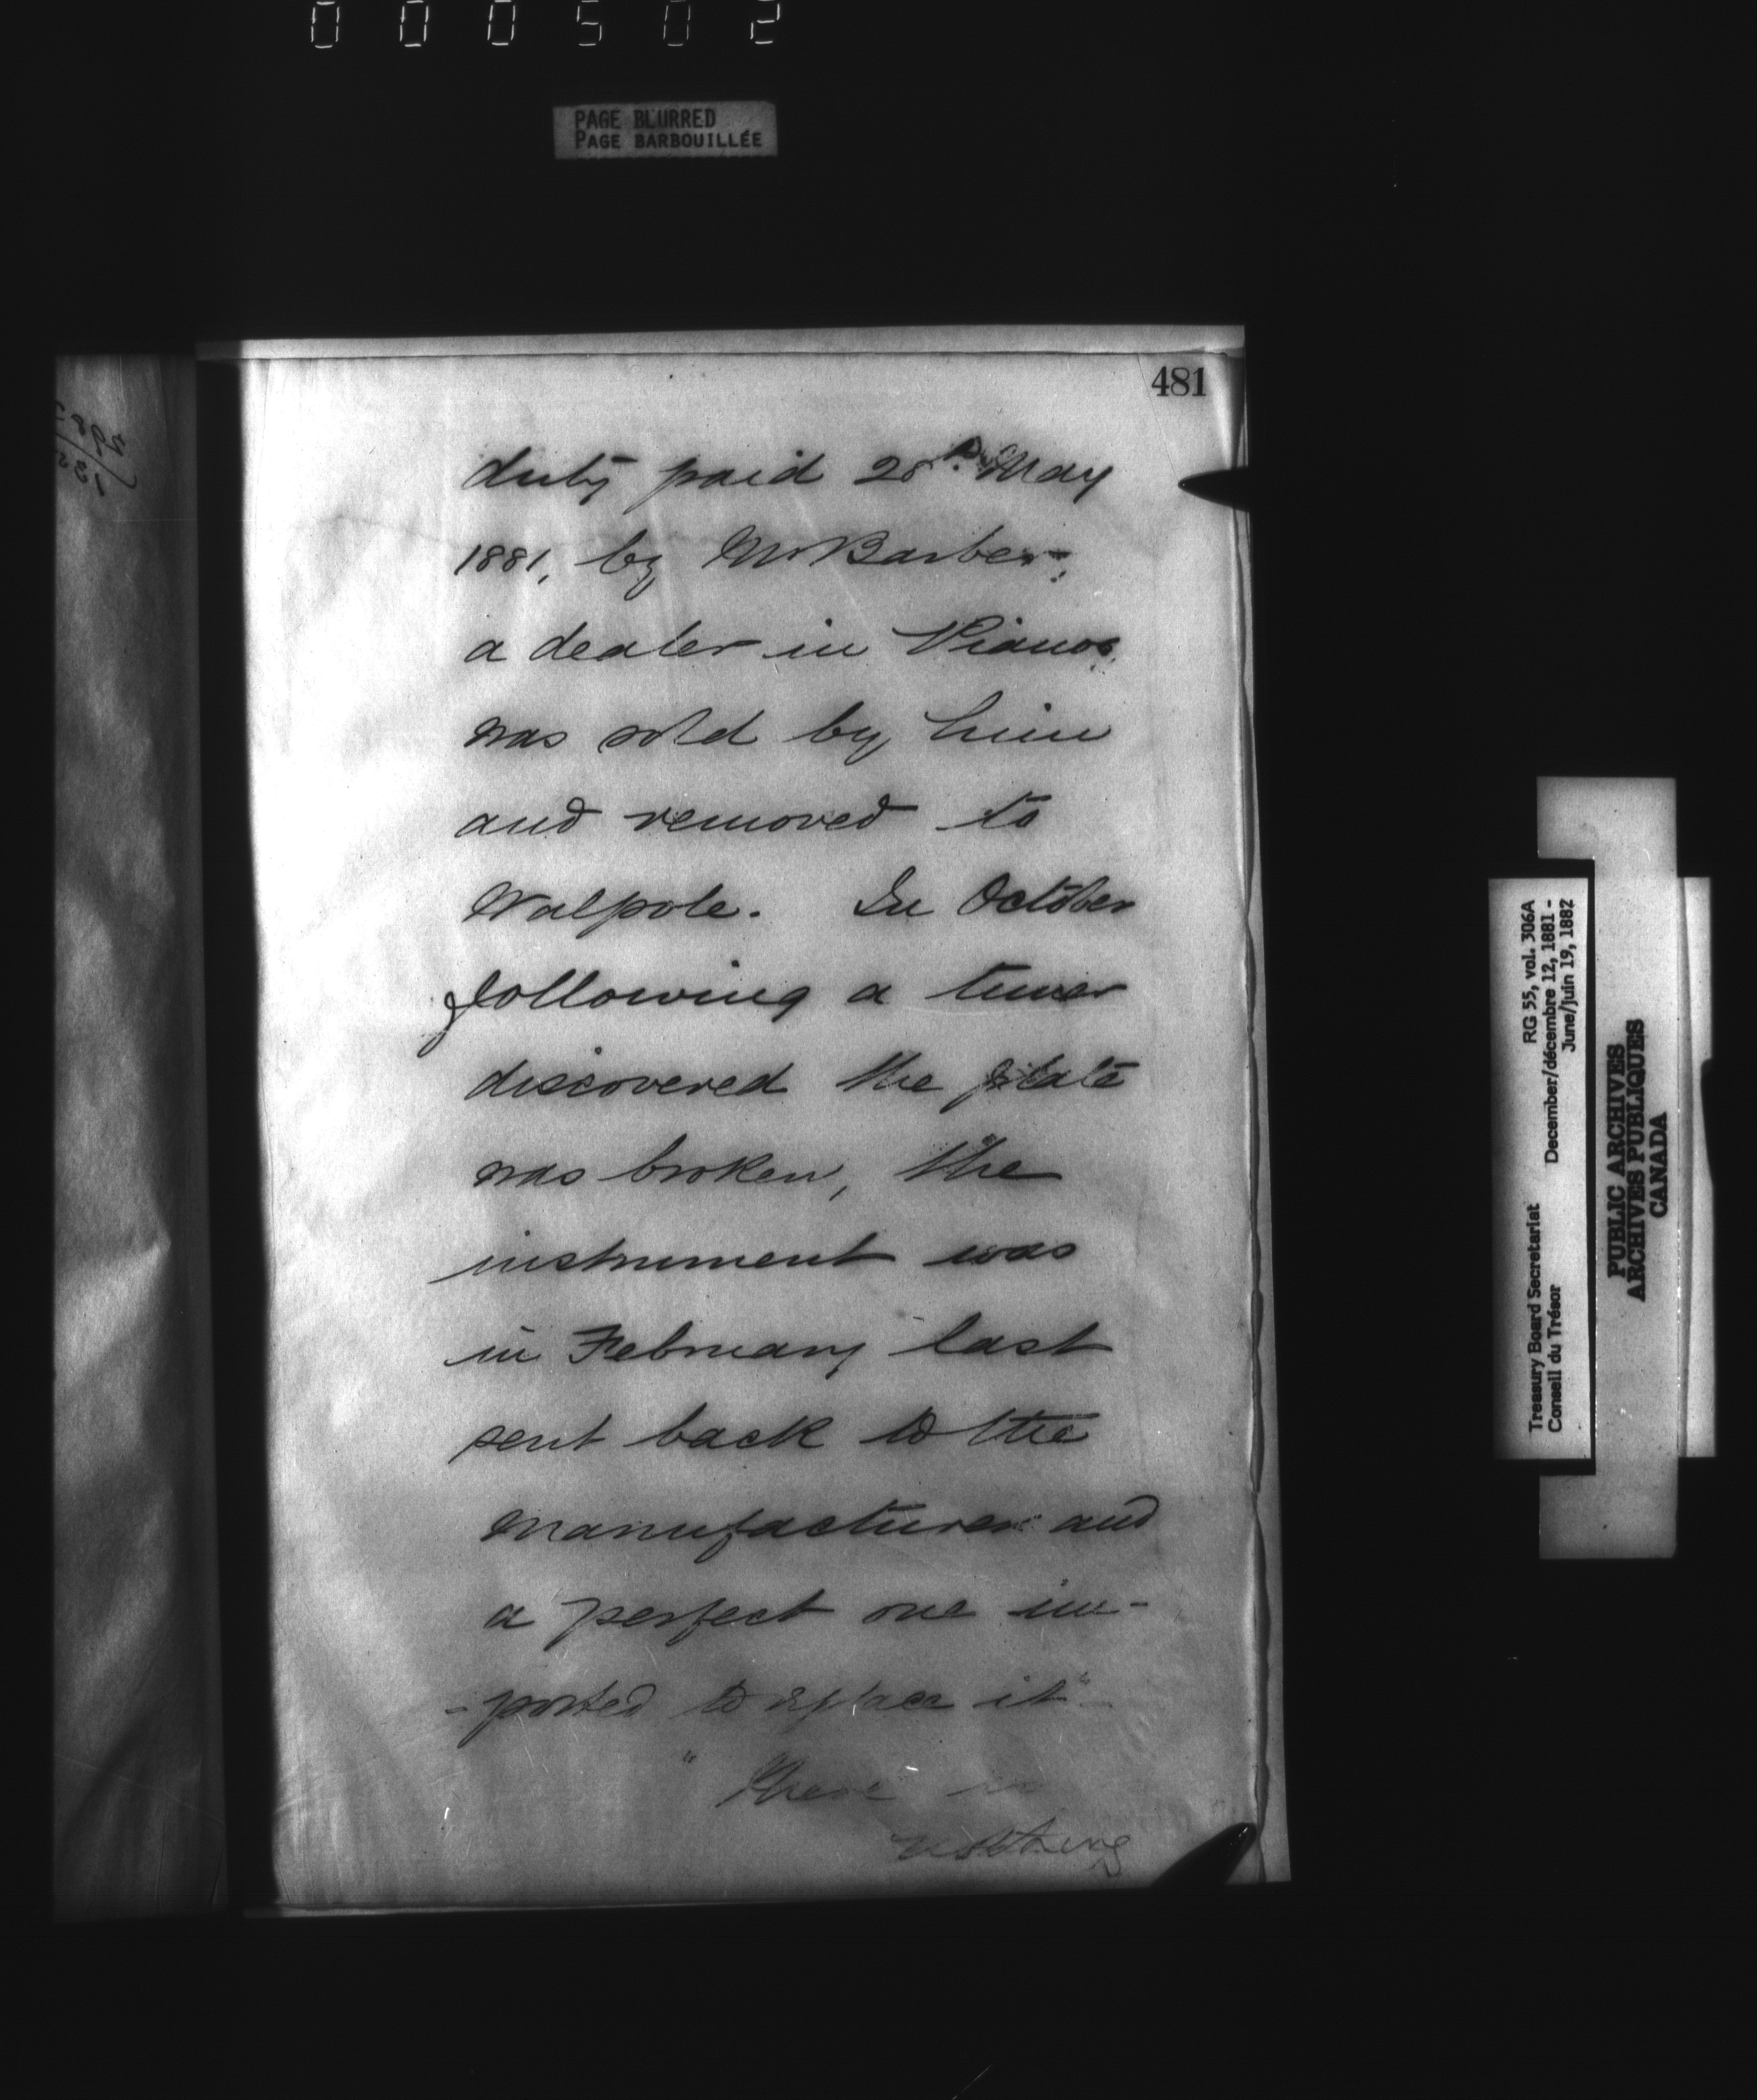 000502
PAGE BLURRED
PAGE BARBOUILLÉE
481
duty paid 28th May
1881, by Mr Barber,
a dealer in Pianos,
was sold by him
and removed to
Walpole. In October
following a tuner
discovered the plate
was broken, the
instrument was
in February last
sent back to the
manufacturer and
a perfect one im-
-ported to replace it"
" There is
nothing
Treasury Board Secretariat RG 55, vol. 306A
Conseil du Trésor December/décembre 12, 1881 -
June/juin 19, 1882
PUBLIC ARCHIVES
ARCHIVES PUBLIQUES
CANADA